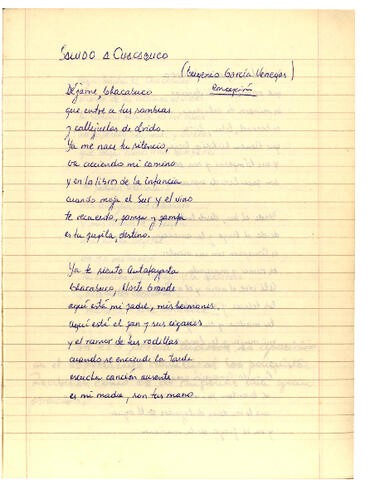 SALUDO A CHACABUCO
(Eugenio García Venegas)
Concepción
Déjame, Chacabuco
que entre a tus sombras
y callejuelas de olvido.
Ya me nace tu silencio,
va creciendo mi camino
y en los libros de la infancia
cuando moja el Sur y el vino
te recuerdo, pampa y pampa
es tu pupila, destino.
Ya te siento Antofagasta
Chacabuco, Norte Grande
aquí está mi padre, mis hermanos
aquí está el pan y sus
y el rumor de tus rodillas
cuando se enciende la tarde
escucha canción ausente
es mi madre, son tus manos